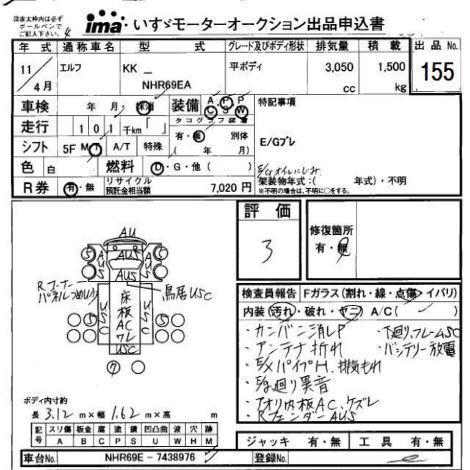 注意太枠内は必ず
ボールペンで
ご記入下さい。
ima いすゞモーターオークション出品申込書
年 式 通称車名 型 式 グレード及びボディ形状 排気量 積 載 出 品 No.
11 / 4月 エルフ KK _ NHR69EA 平ボディ 3,050 cc 1,500 kg 155
車検 年 月・ 装備 A P P C S W 特記事項
走行 1 0 1 千km「 」 タコグラフ装着
有・無 別体
シフト 5F MT A/T 特殊 ( 年 月) E/Gブレ
色 白 燃料 D・G・他( ) E/Gオイルにじみ
架装物年式:( 年式)・不明
※不明の場合は、不明に○をする。
R券 有・無 リサイクル預託金相当額 7,020 円
評 価 3
修復箇所 有・無
AU
AUS
AUS
Rコーナーパネルつめ(U)
鳥居USC
床板ACワレ
USC
検査員報告 Fガラス(割れ・線・点傷・イバリ)
内装(汚れ・破れ・ヤニ) A/C( )
・カンバン消しP ・下廻り、フレームSC
・アンテナ折れ ・バッテリー放電
・E/XパイプH、排気もれ
・E/G廻り異音
・アオリ内板AC、ケズレ
・RフェンダーAUS
ボディ内寸約
長 3.12 m×幅 1.62 m×高 m
記号 スリ傷 板金 腐 塗 錆 凹凸曲 波 穴 跡
A B C P S U W H M
ジャッキ 有・無 工 具 有・無
車台No. NHR69E - 7438976 登録No.